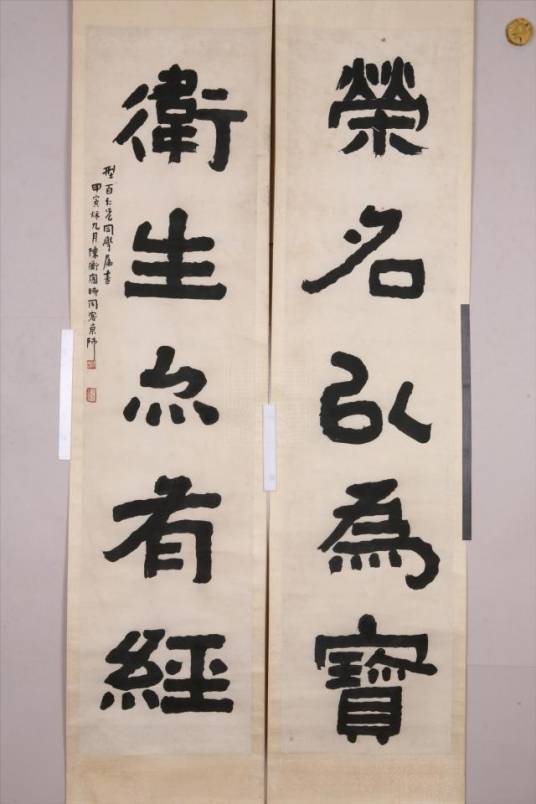 榮名以爲寶
衛生亦有經
型百仁兄同學屬書
甲寅秋九月陳衡恪時同客京師